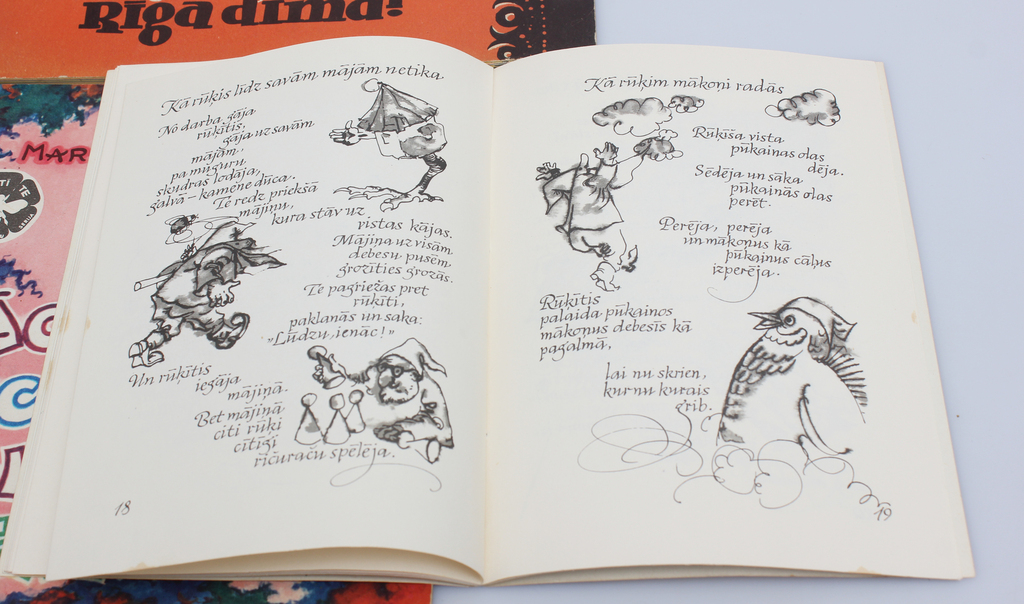 Rīga dima!
MAR
Kā rūķis līdz savām mājām netika
No darba gāja
rūķītis,
gāja uz savām
mājām,
pa muguru
skudras lodāja,
galvā – kamene dūca.
Te redz priekšā
mājiņu,
kura stāv uz
vistas kājas.
Mājiņa uz visām
debesu pusēm
grozīties grozās.
Te pagriežas pret
rūķīti,
paklanās un saka:
„Lūdzu, ienāc!"
Un rūķītis
iegāja
mājiņā.
Bet mājiņā
citi rūķi
cītīgi
ričuraču spēlēja.
18
Kā rūķim mākoņi radās
Rūķīša vista
pūkainas olas
dēja.
Sēdēja un sāka
pūkainās olas
perēt.
Perēja, perēja
un mākoņus kā
pūkainus cāļus
izperēja.
Rūķītis
palaida pūkainos
mākoņus debesīs kā
pagalmā,
lai nu skrien,
kur nu kurais
grib.
19